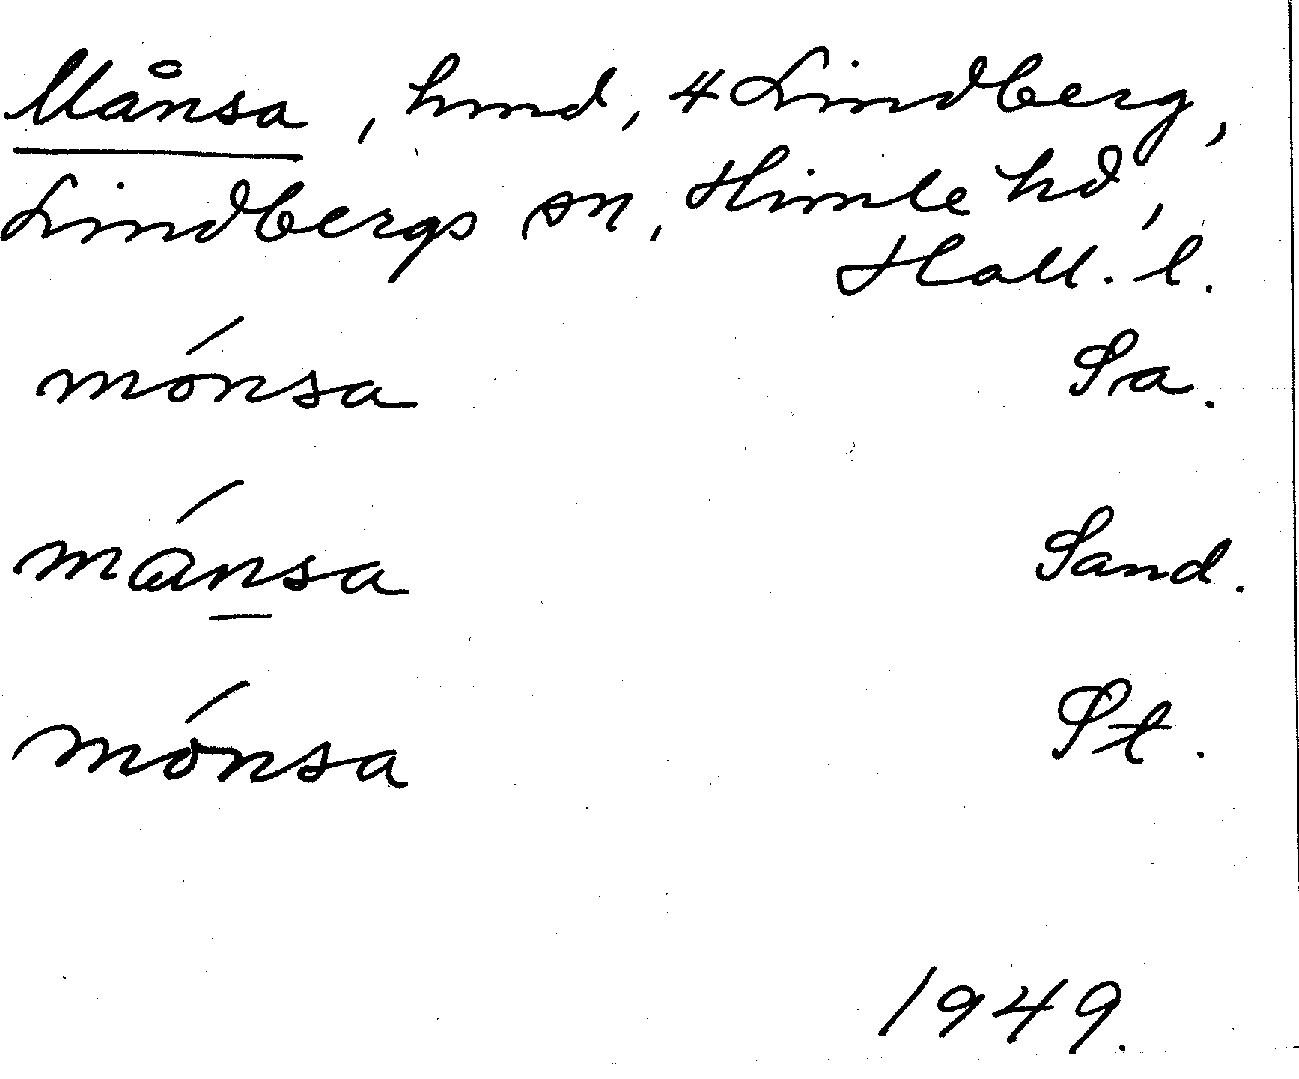 Månsa, hmd, 4 Lindberg,
Lindbergs sn, Himle hd,
Hall. l.
mónsa Sa.
mánsa Sand.
mónsa St.
1949.